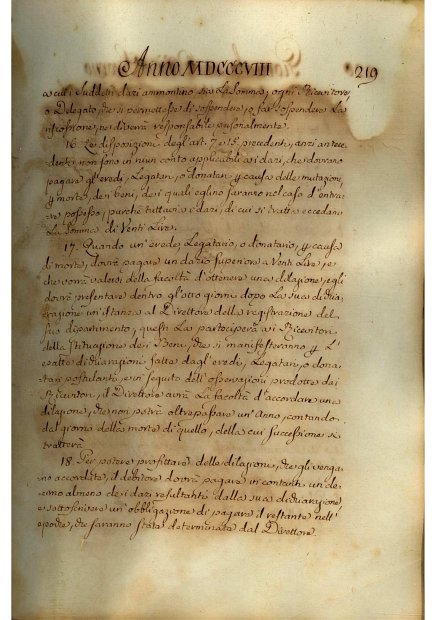 Anno MDCCCVIII 219
a cui i suddetti dazi ammontino sia la somma; ogni Ricevitore,
o Delegato, che si permettesse di sospendere, o far sospendere la
riscossione, ne diverrà responsabile personalmente.
16. Le disposizioni degl'art. 7 e 15. precedenti, anzi antece
denti, non sono in niun conto applicabili ai dazi, che dovran̄o
pagarsi gl'eredi, Legatari, o donatari, per causa delle mutazioni,
per morte, dei beni, dei quali eglino saran̄o nel caso d'entra
re possesso, purchè tuttavia i dazi, di cui si tratta eccedano
La somma di Venti Lire.
17. Quando un'erede, Legatario, o donatario, per causa
di morte, dovrà pagare un dazio superiore a Venti Lire, e
che vorrà valersi della facoltà d'ottenere una dilazione, egli
dovrà presentare dentro gl'otto giorni dopo la sua dichia
razione un'istanza al Direttore della registrazione del
suo dipartimento, questi la parteciperà ai Ricevitori
della situazione dei Beni, che si manifesteran̄o per l'
esatte dichiarazioni fatte dagl'eredi, Legatari, o dona
tari postulanti, e in seguito dell'osservazioni prodotte dai
Ricevitori, il Direttore avrà la facoltà d'accordare una
dilazione, che non potrà oltrepassare un'Anno, contando
dal giorno della morte di quello, della cui successione si
tratterà
18. Per potere profittare delle dilazioni, che gli venga
no accordate, il debitore dovrà pagare in contanti un de
cimo almeno dei dazi resultanti dalla sua dichiarazione
e sottoscrivere un'obbligazione di pagare il restante nell'
epoche, che saranno state determinate dal Direttore.